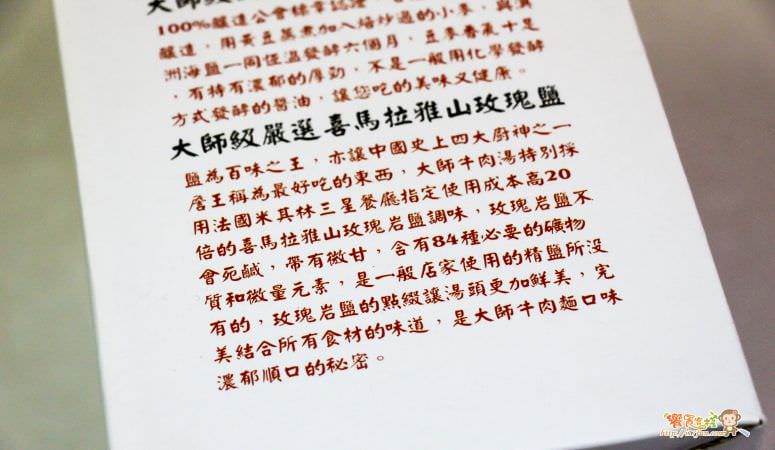 大師級
100%釀造公會
釀造，用黃豆蒸煮加入焙炒過的小麥，與澳
洲海鹽一同恆溫發酵六個月，豆麥香氣十足
，有特有濃郁的厚勁，不是一般用化學發酵
方式發酵的醬油，讓您吃的美味又健康。
大師級嚴選喜馬拉雅山玫瑰鹽
鹽為百味之王，亦讓中國史上四大廚神之一
詹王稱為最好吃的東西，大師牛肉湯特別採
用法國米其林三星餐廳指定使用成本高20
倍的喜馬拉雅山玫瑰岩鹽調味，玫瑰岩鹽不
會死鹹，帶有微甘，含有84種必要的礦物
質和微量元素，是一般店家使用的精鹽所沒
有的，玫瑰岩鹽的點綴讓湯頭更加鮮美，完
美結合所有食材的味道，是大師牛肉麵口味
濃郁順口的秘密。